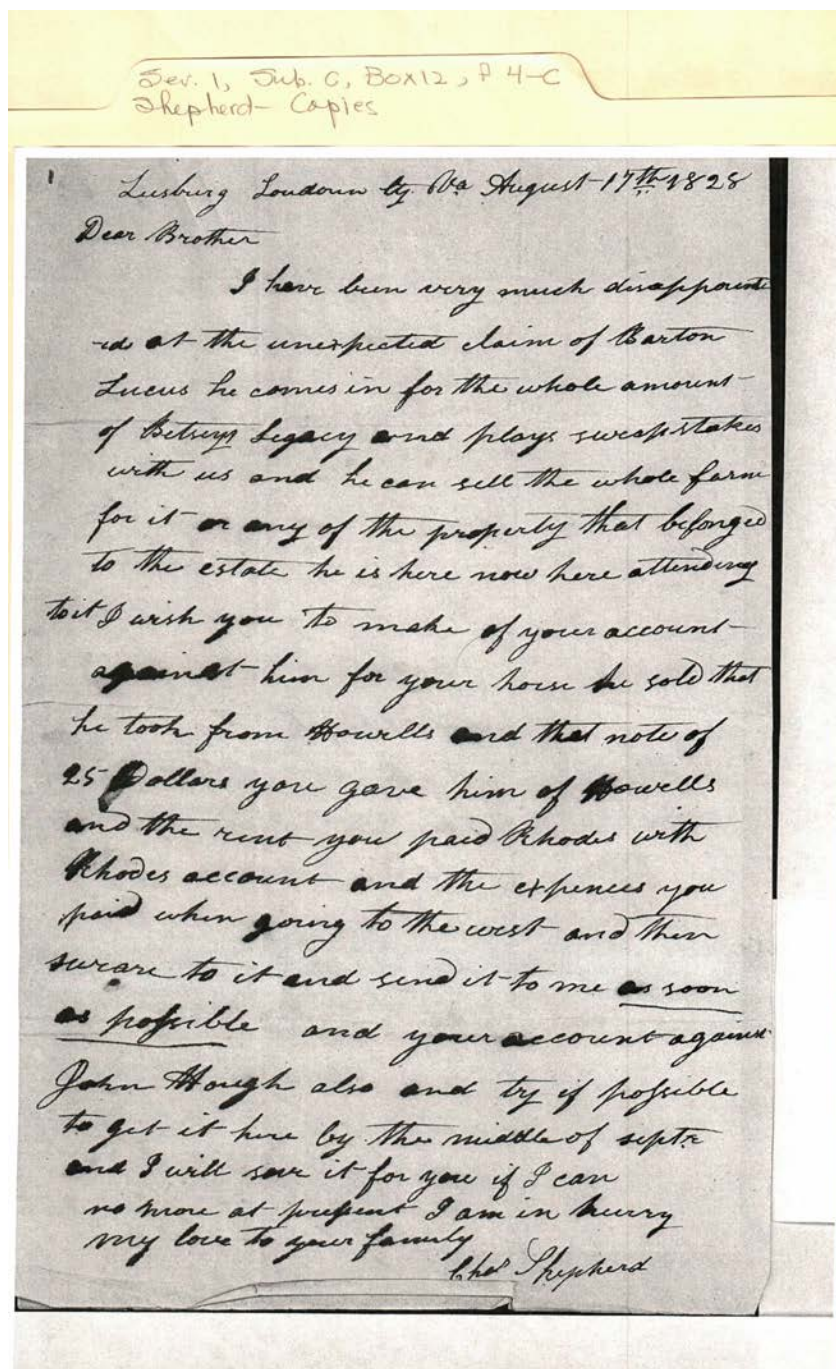 Ser. 1, Sub. C, Box 12, F 4-C
Shepherd - Copies
1
Leesburg Loudoun Cty. Va August 17th 1828
Dear Brother
I have been very much disappoint
-ed at the unexpected claim of Barton
Lucus he comes in for the whole amount
of Betseys Legacy and plays sweepstakes
with us and he can sell the whole farm
for it or any of the property that belonged
to the estate he is here now here attending
to it I wish you to make of your account
against him for your horse he sold that
he took from Howells and that note of
25 Dollars you gave him of Howells
and the rent you paid Rhodes with
Rhodes account and the expences you
paid when going to the west and then
sweare to it and send it to me as soon
as possible and your account against
John Hough also and try if possible
to get it here by the middle of septr
and I will save it for you if I can
no more at present I am in hurry
my love to your family
Chas Shepherd